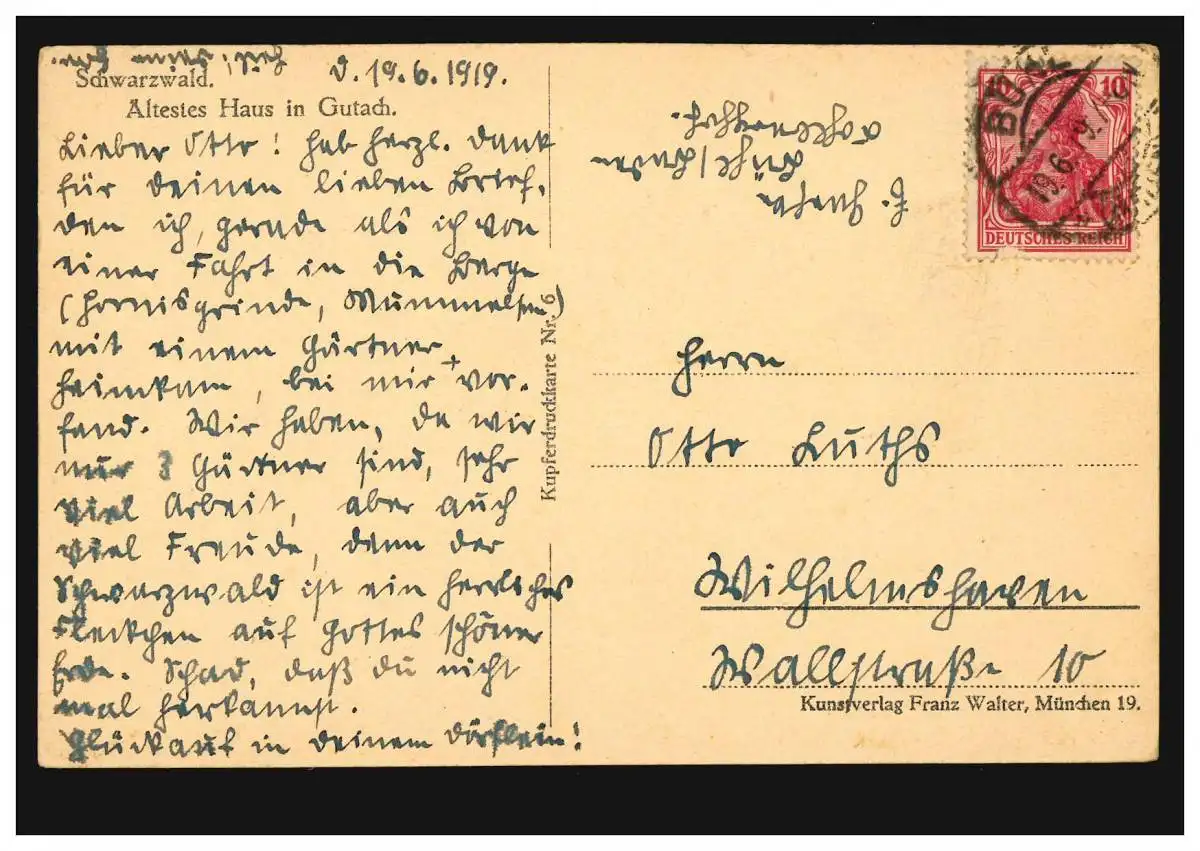 d. 19.6.1919.
Schwarzwald.
Ältestes Haus in Gutach.
Lieber Otto! hab herzl. Dank
für deinen lieben Brief,
den ich, gerade als ich von
einer Fahrt in die Berge
(Hornisgrinde, Mummelsee)
mit einem Gärtner
heimkam, bei mir + vor-
fand. Wir haben, da wir
nur 3 Gärtner sind, sehr
viel Arbeit, aber auch
viel Freude, denn der
Schwarzwald ist ein herrliches
Fleckchen auf Gottes schöner
Erde. Schad, daß du nicht
mal herkannst.
Glückauf in deinem Dörflein!
Kupferdruckkarte Nr. 6
10
DEUTSCHES REICH
19.6.19.
Herrn
Otto Luths
Wilhelmshaven
Wallstraße 10
Kunstverlag Franz Walter, München 19.